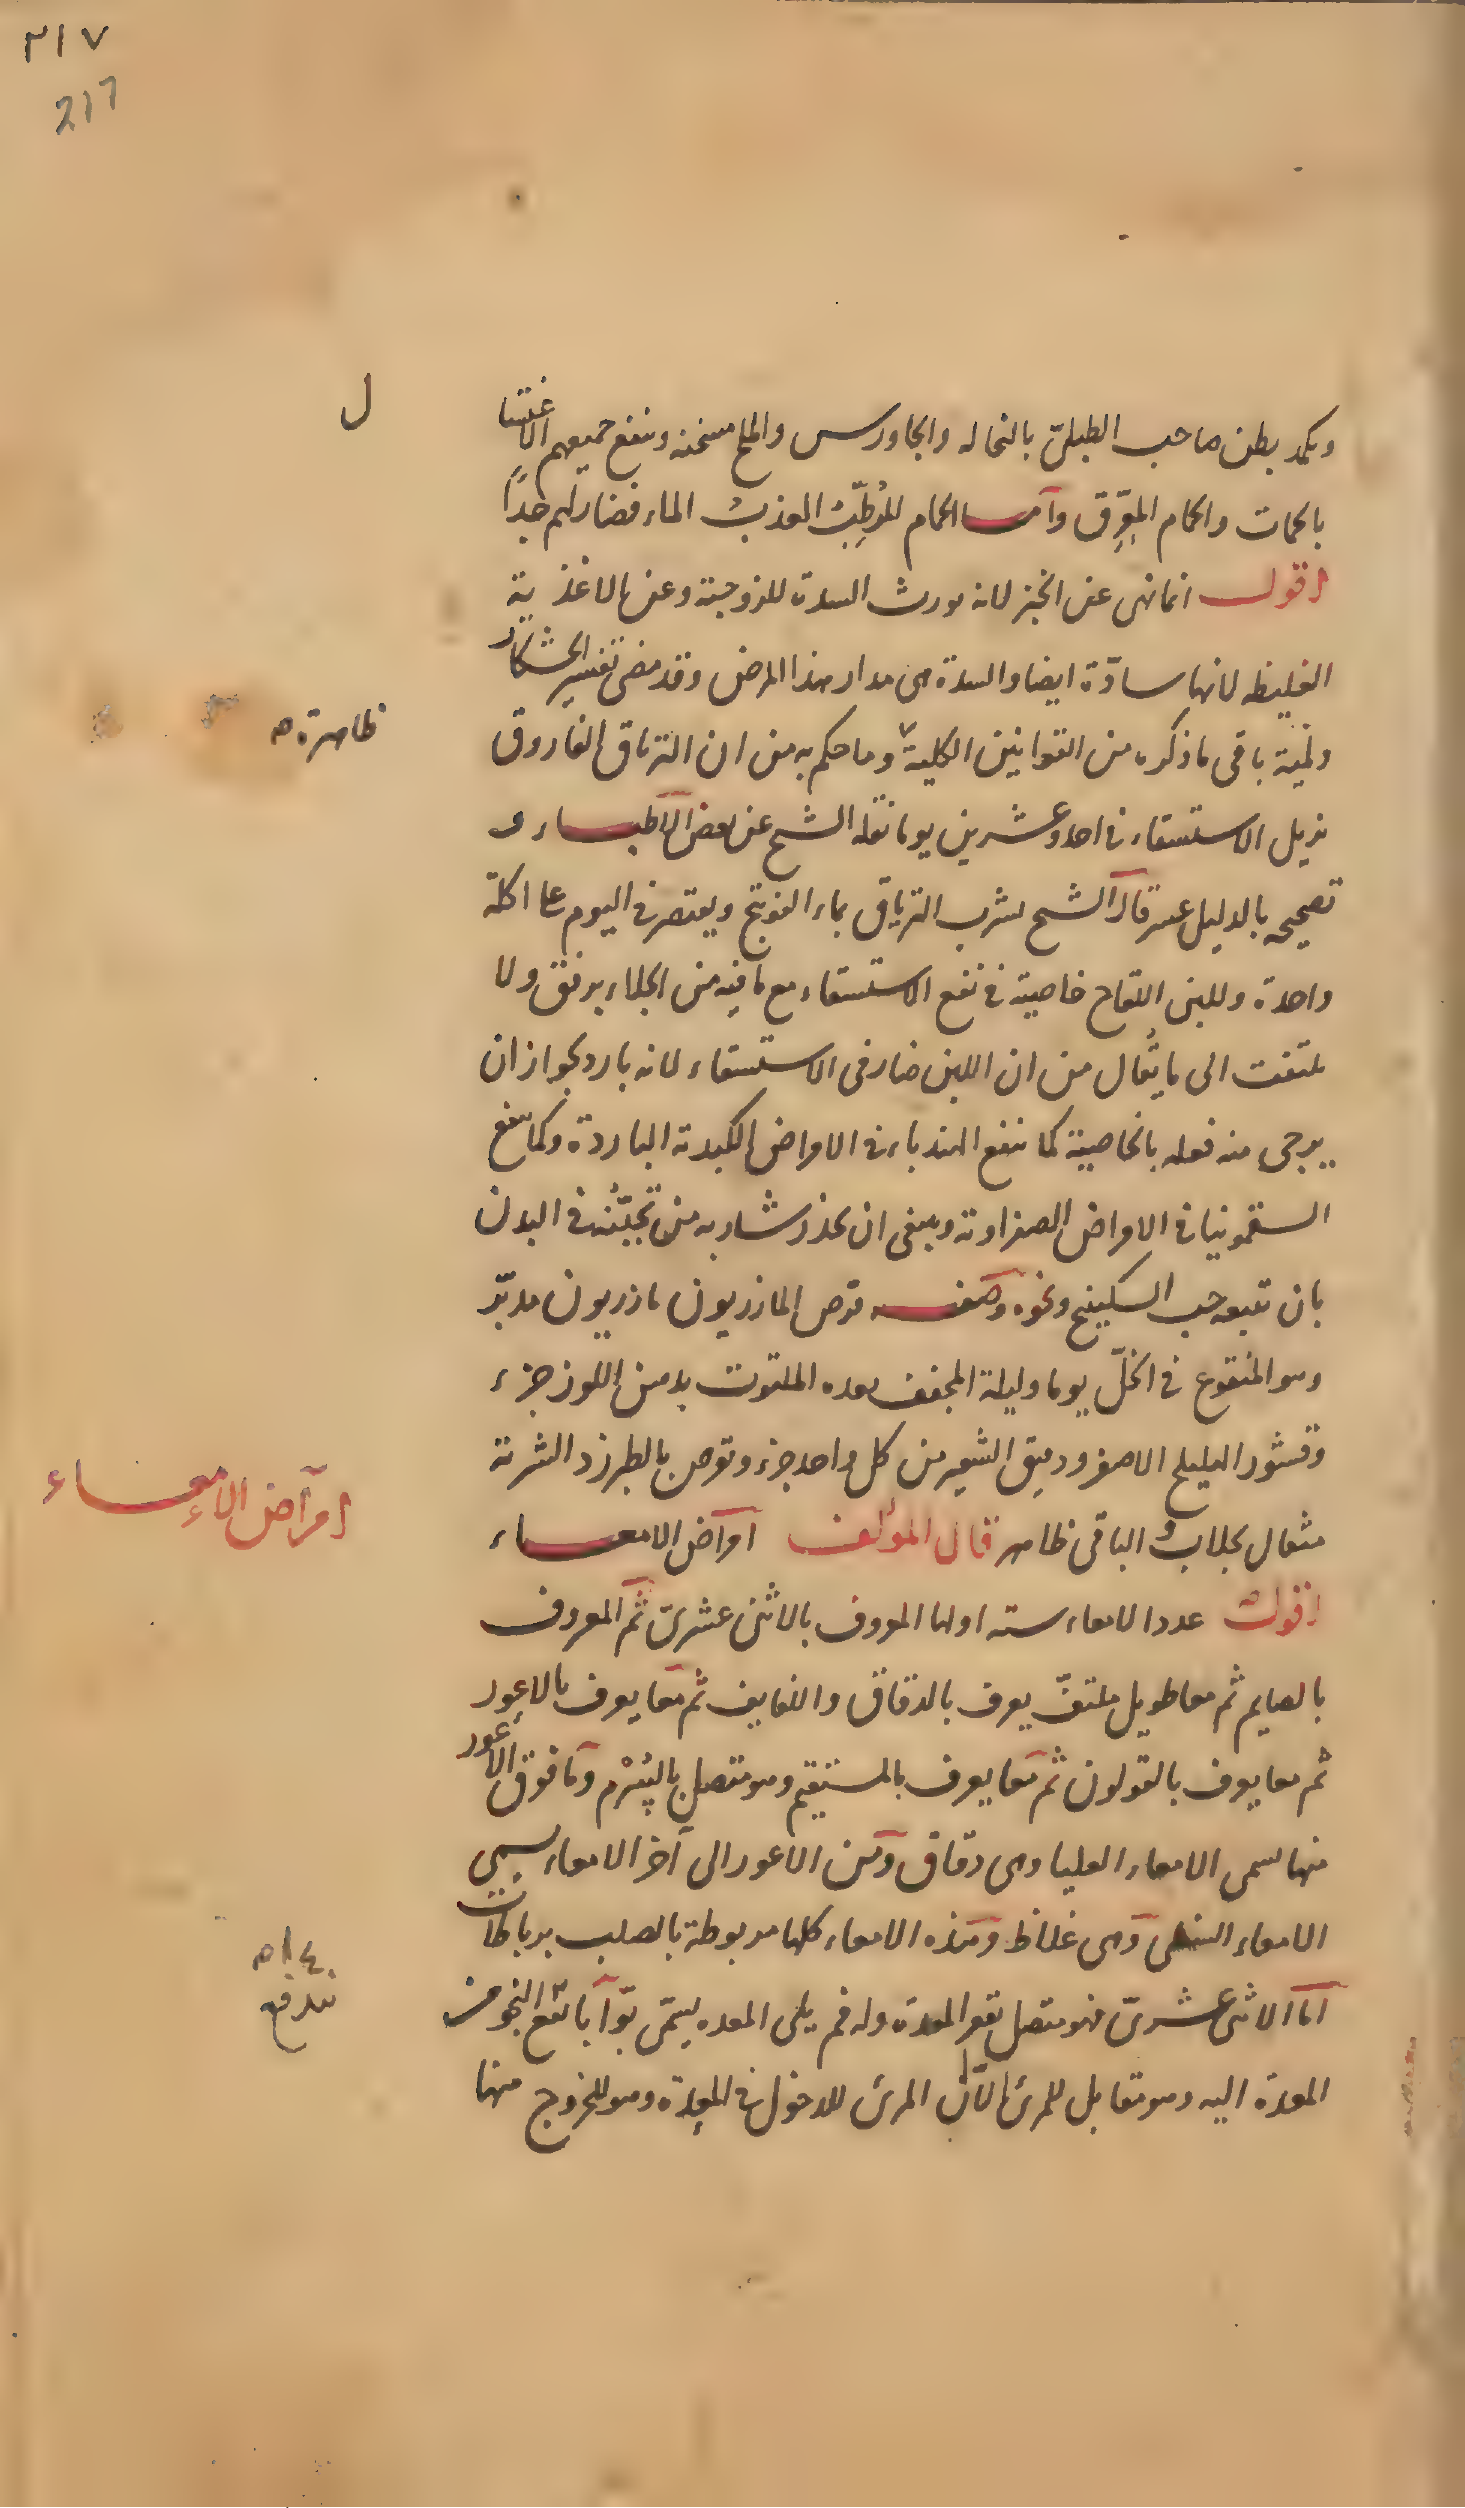 ٢١٧
217
ل
ويكمد بطن صاحب الطبلى بالنخاله والجاورس والملح مسخنه وينفع جميعهم الاغتسا
بالحمات والحمام المعرّق وآما الحمام المُرطّب العذب الماء فضار لهم جدًا
اقول انما نهى عن الخبز لانه يورث السدة للزوجته وعن الاغذية
الغليظه لانها سادّة ايضا والسدة هى مدار هذا المرض وقد مضى تفسير الخشكار
ولميّة باقى ما ذكره من القوانين الكلية وما حكم به من ان الترياق الفاروق
ظاهرة م
يزيل الاستسقاء فى احد وعشرين يوما نقله الشيخ عن بعض الاطباء و
تصحيحه بالدليل عسر قال الشيخ يشرب الترياق بماء الفوتنج ويقتصر فى اليوم على اكلة
واحدة وللبن اللقاح خاصية فى نفع الاستسقاء مع ما فيه من الجلاء برفق ولا
يلتفت الى ما يقال من ان اللبن ضار فى الاستسقاء لانه بارد لجواز ان
يرجى منه فعله بالخاصية كما ينفع الهندباء فى الامراض الكبدية الباردة وكما ينفع
السقمونيا فى الامراض الصفراوية وينبغى ان يحذر شاربه من تجبّنه فى البدن
بان يتبعه حب السكبينج ونحوه وصفة قرص المازريون مازريون مدبّر
وهو المنقوع فى الخلّ يوما وليلة المجفف بعده الملتوت بدهن اللوز جزء
وقشور الهليلج الاصفر ودقيق الشعير من كل واحد جزء ويقرص بالطبرزد الشربة
مثقال بجلاب والباقى ظاهر قال المؤلف امراض الامعاء
امراض الامعاء
اقول عدد الامعاء سته اولها المعروف بالاثنى عشرىّ ثم المعروف
بالصايم ثم معا طويل ملتفّ يعرف بالدقاق واللفايف ثم معا يعرف بالاعور
ثم معا يعرف بالقولون ثم معا يعرف بالمستقيم وهو متصل بالسُرْم وما فوق الاعور
منها يسمى الامعاء العليا وهى دقاق ومن الاعور الى آخر الامعاء يسمى
الامعاء السفلى وهى غلاظ وهذه الامعاء كلها مربوطة بالصلب برباطات
اما الاثنى عشرىّ فهو متصل بقعر المعدة وله فم يلى المعده يسمّى بوّابا يقع النجو من
يندفع
المعدة اليه وهو مقابل للمرئ لان المرئ للدخول فى المعدة وهو للخروج منها